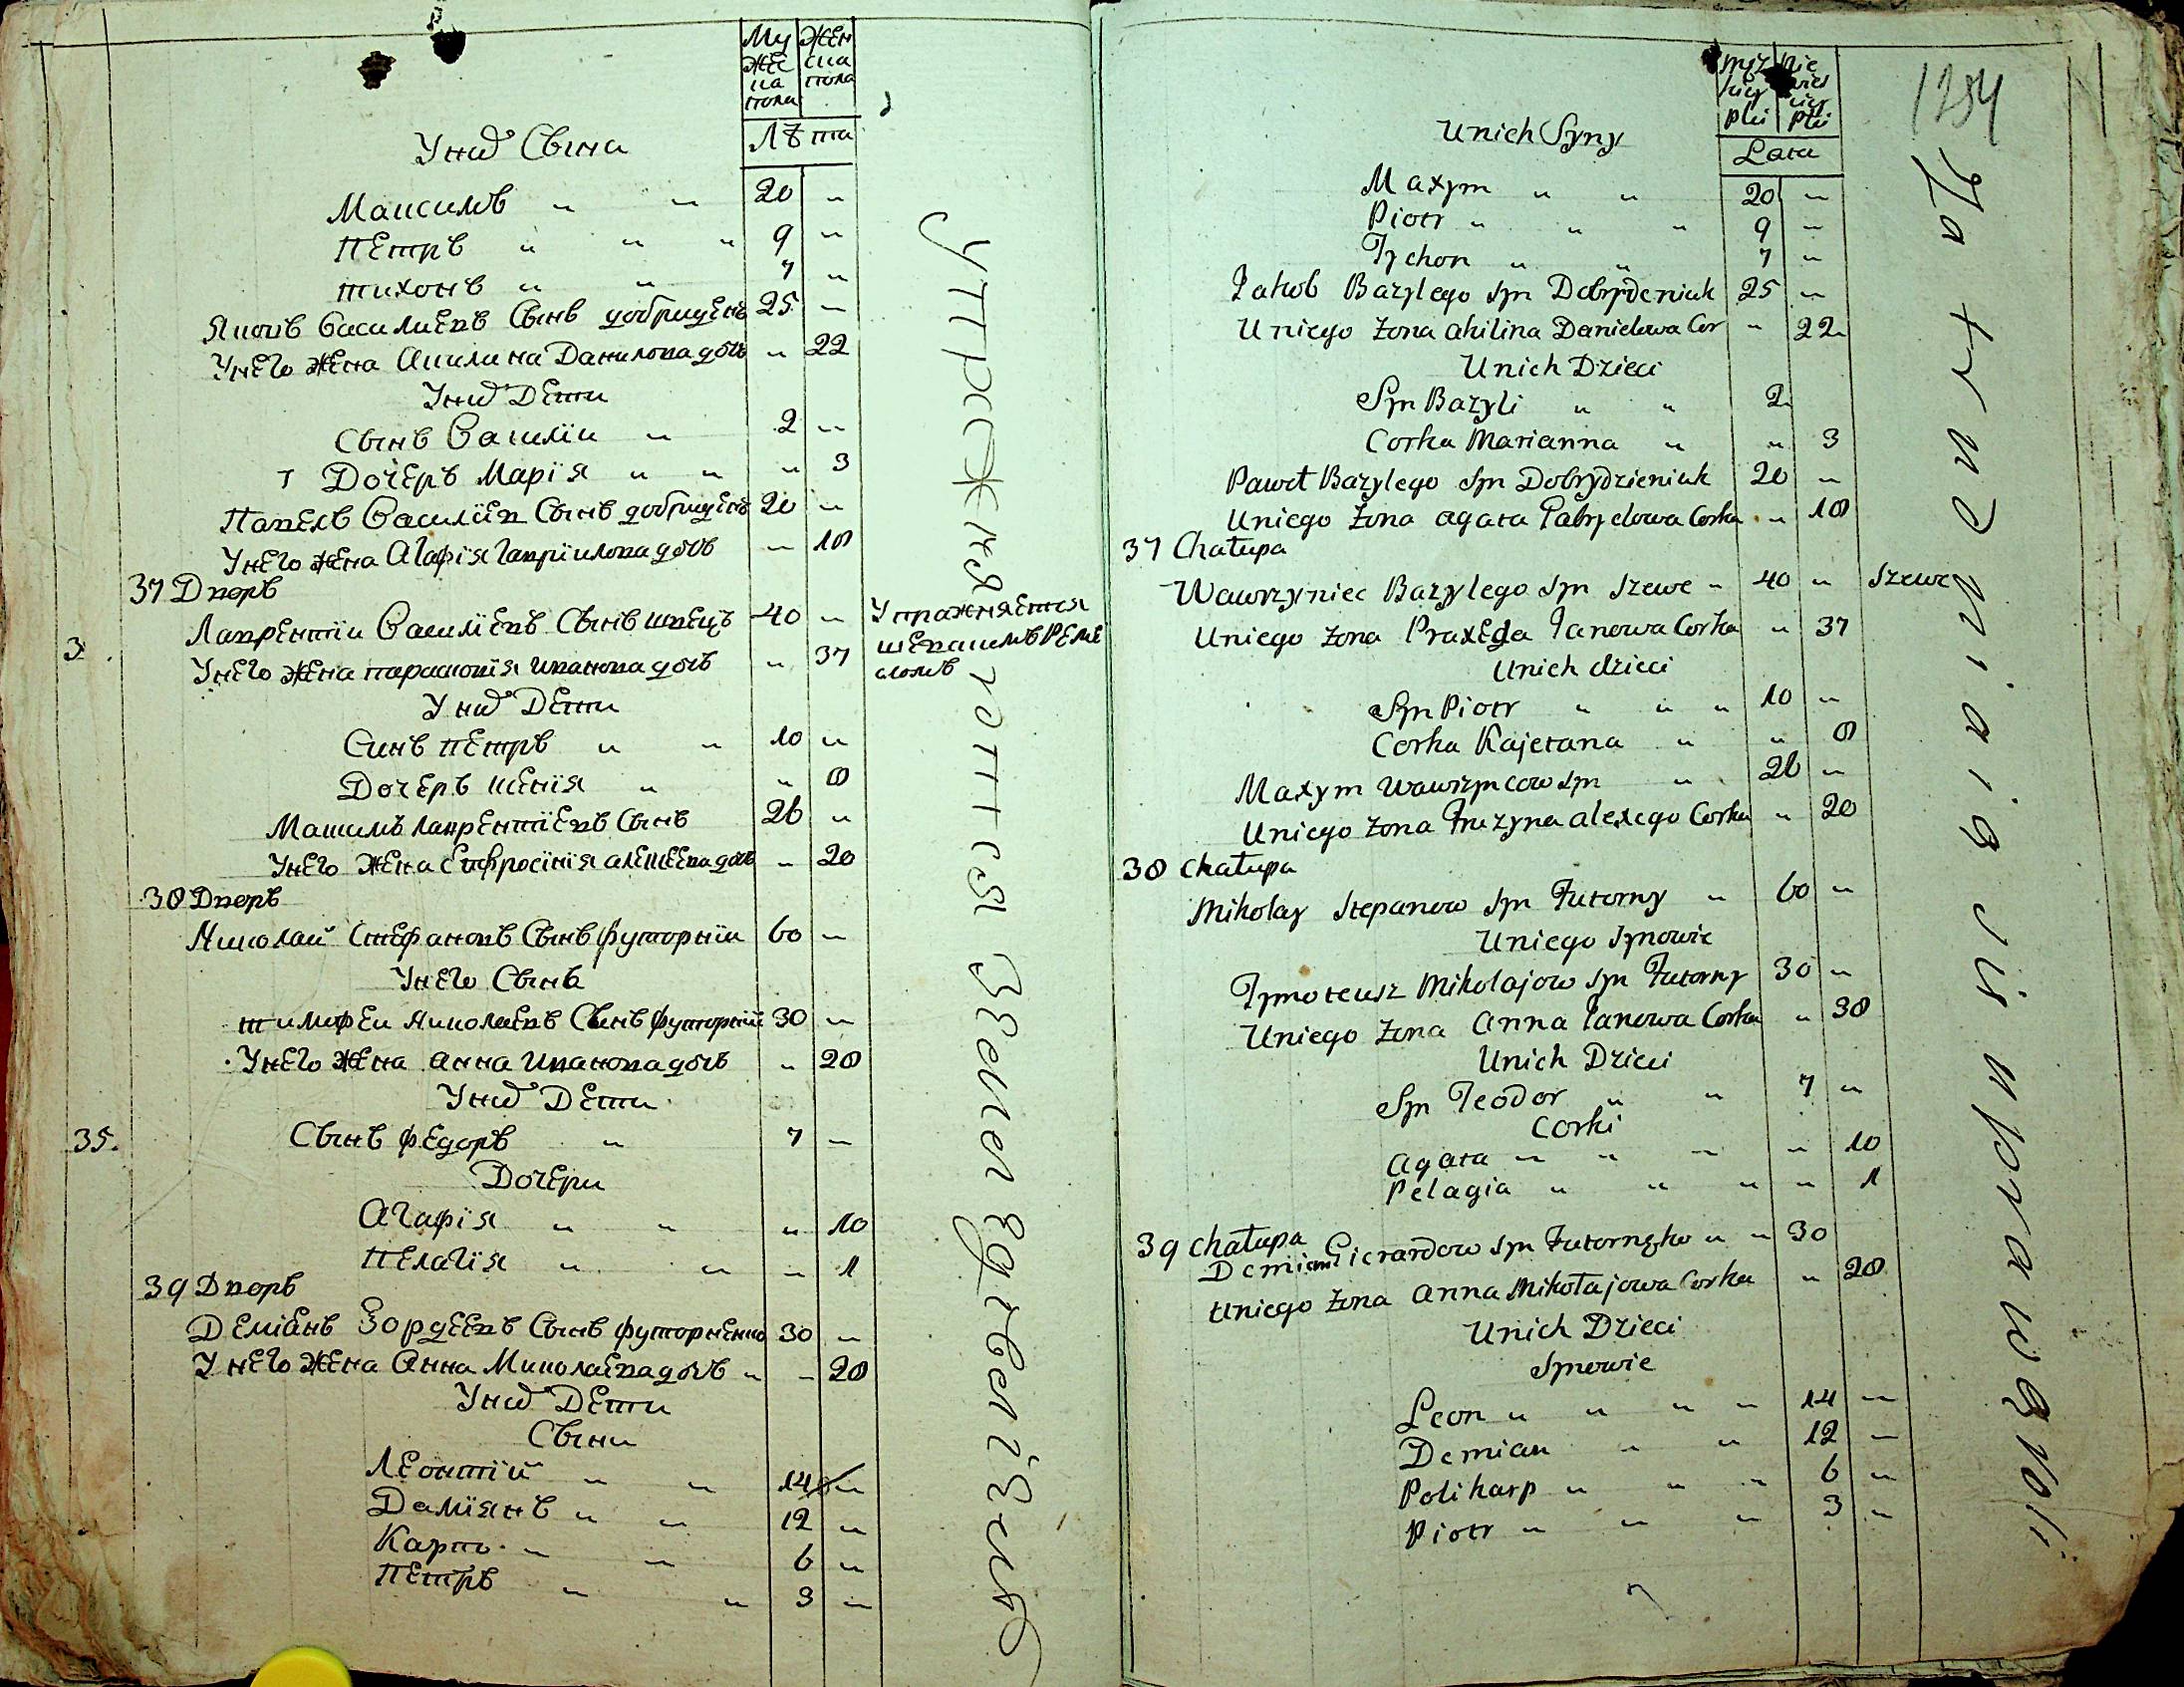 Му жеска пола
Женска пола
Лѣта
Уних Сына
Максимъ " " 20 "
Петръ " " " 9 "
тихонъ " " 7 "
Яковъ Василиевъ Сынъ добридень 25 "
Унего жена Акилина Данилова дочь " 22
Уних Дети
Сынъ Василїи " 2 "
Дочеръ Марїя " " " 3
Павелъ Василїев Сынъ добридень 20 "
Унего жена Агафїя Гаврїилова дочь " 18
37 Дворъ
Лаврентїи Василїевъ Сынъ швецъ 40 " Упражняется шевскимъ ремесломъ
3.
Унего жена параскотїя Иванова дочь " 37
Уних Дети
Синъ петръ " " 10 "
Дочеръ ксенїя " " 8
Максимъ лаврентїевъ Сынъ 26 "
Унего жена Ефросїнїя алексеева дочь " 20
38 Дворъ
Николай Стефановъ Сынъ футорнїи 60 "
Унего Сынъ
тимофеи николаевъ Сынъ футорнїи 30 "
Унего жена анна иванова дочь " 28
Уних Дети
35.
Сынъ федоръ " 7 "
Дочери
Агафїя " " " 10
Пелагїя " " " 1
39 Дворъ
Демїанъ Гордеевъ Сынъ футорненко 30 "
Унего жена Анна Миколаева дочь " " 28
Уних Дети
Сыни
Леонтїй " " 14 "
Дамїянъ " " 12 "
Карпо " " 6 "
Петръ " " 3 "
упражняются земледелїемъ
męzkiey płci
niewiesciey płci
Lata
1254
Unich Syny
Maxym " " 20 "
Piotr " " " 9 "
Tychon " " 7 "
Jakob Bazylego Syn Dobrydeniuk 25 "
Uniego Zona ahilina Danielowa Cor " 22
Unich Dzieci
Syn Bazyli " " 2
Corka Marianna " " 3
Paweł Bazylego Syn Dobrydzieniuk 20 "
Uniego Zona agata Gabryelowa Corka " 18
37 Chałupa
Wawrzyniec Bazylego Syn Szewc " 40 " Szewc
Uniego Zona Praxeda Janowa Corka " 37
Unich dzieci
Syn Piotr " " " 10 "
Corka Kajetana " " 8
Maxym Wawrzyncow Syn " 26 "
Uniego Zona Fruzyna alexego Corka " 20
38 Chałupa
Mikołay Stepanow Syn Futorny " 60 "
Uniego Synowie
Tymoteusz Mikołajow Syn Futorny 30 "
Uniego Zona anna Janowa Corka " 38
Unich Dzieci
Syn Teodor " " 7 "
Corki
agata " " " " 10
Pelagia " " " " 1
39 Chałupa
Demian Gierardow Syn Futornyko " " 30
Uniego Zona anna Mikołajowa Corka " 28
Unich Dzieci
Synowie
Leon " " " " 14 "
Demian " " 12 "
Polikarp " " " 6 "
Piotr " " " 3 "
Zatrudniaią się uprawą roli